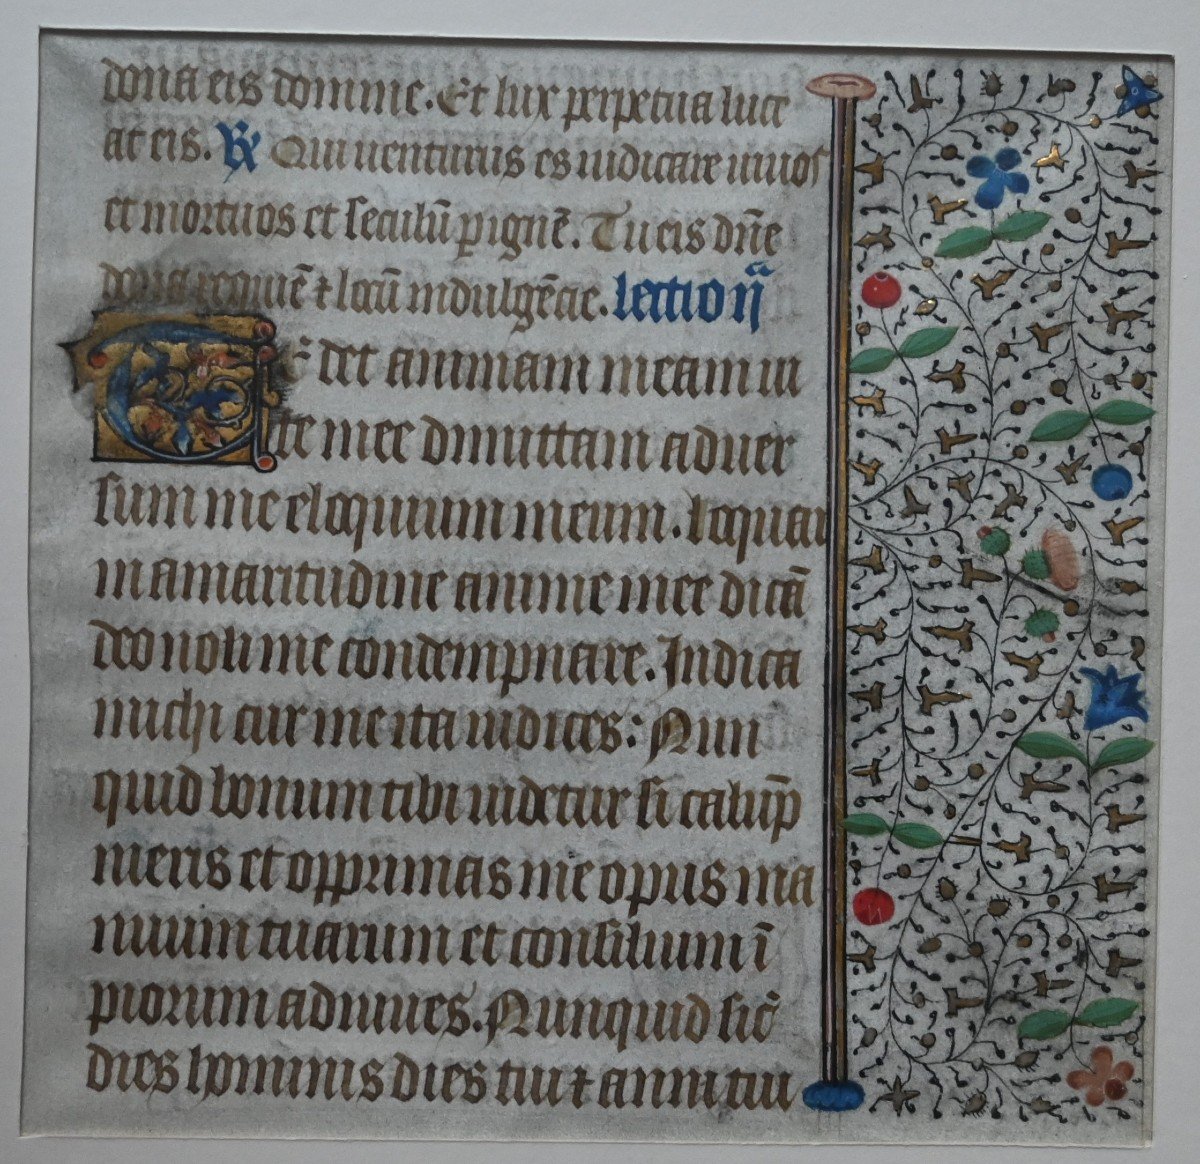 dona eis domine. Et lux perpetua luce
at eis. R̸ Qui uenturus es iudicare uiuos
et mortuos et seculū p ignē. Tu eis dn̄e
dona requiē ⁊ locū indulgēcie. lectio ij̄
T det animam meam ui
te mee dimittam aduer
sum me eloquium meum. loquar
in amaritudine anime mee dicā
deo noli me condempnare. Indica
michi cur me ita iudices: Nun
quid bonum tibi uidetur si calūp
nieris et opprimas me opus ma
nuum tuarum et consilium ī
piorum adiuues. Nunquid sic̄
dies hominis dies tui ⁊ anni tui